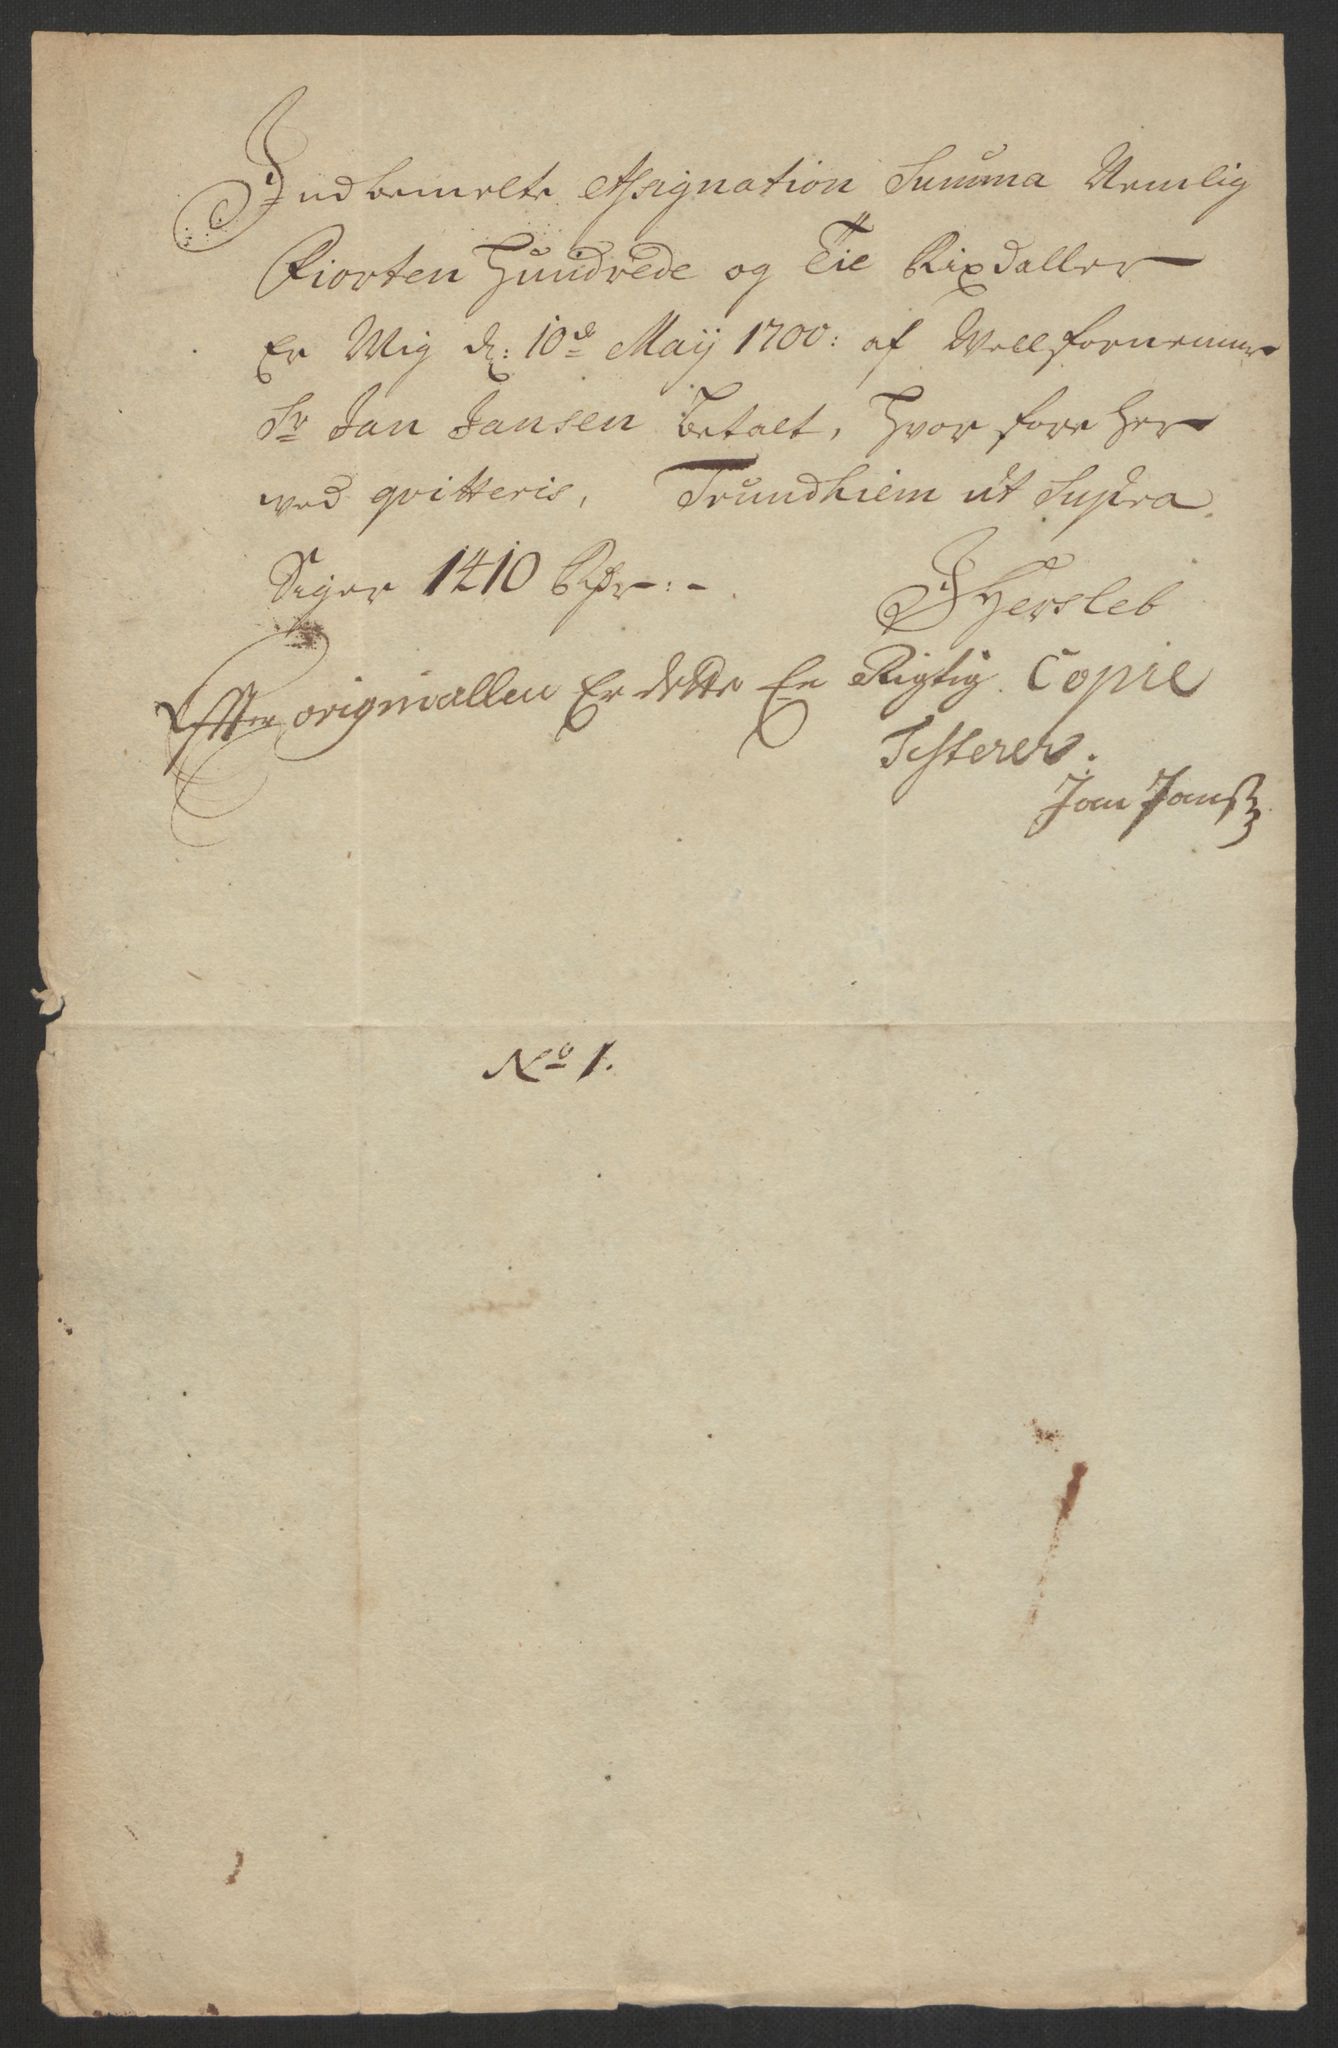 Indbemelte Assignation Summa Nemlig
Fiorten Hundrede og Tie Rixdaller
Er Mig d: 10de Maij 1700: af Wellfornemme
Sr Jan Jansen betalt, hvorfore her
ved qvitteris, Trundhiem ut Supra.
Siger 1410 Rdr:-
JHersleb
Effter originallen Er dette En Rigtig Copie
Testerer.
Jan Jansz
No 1.